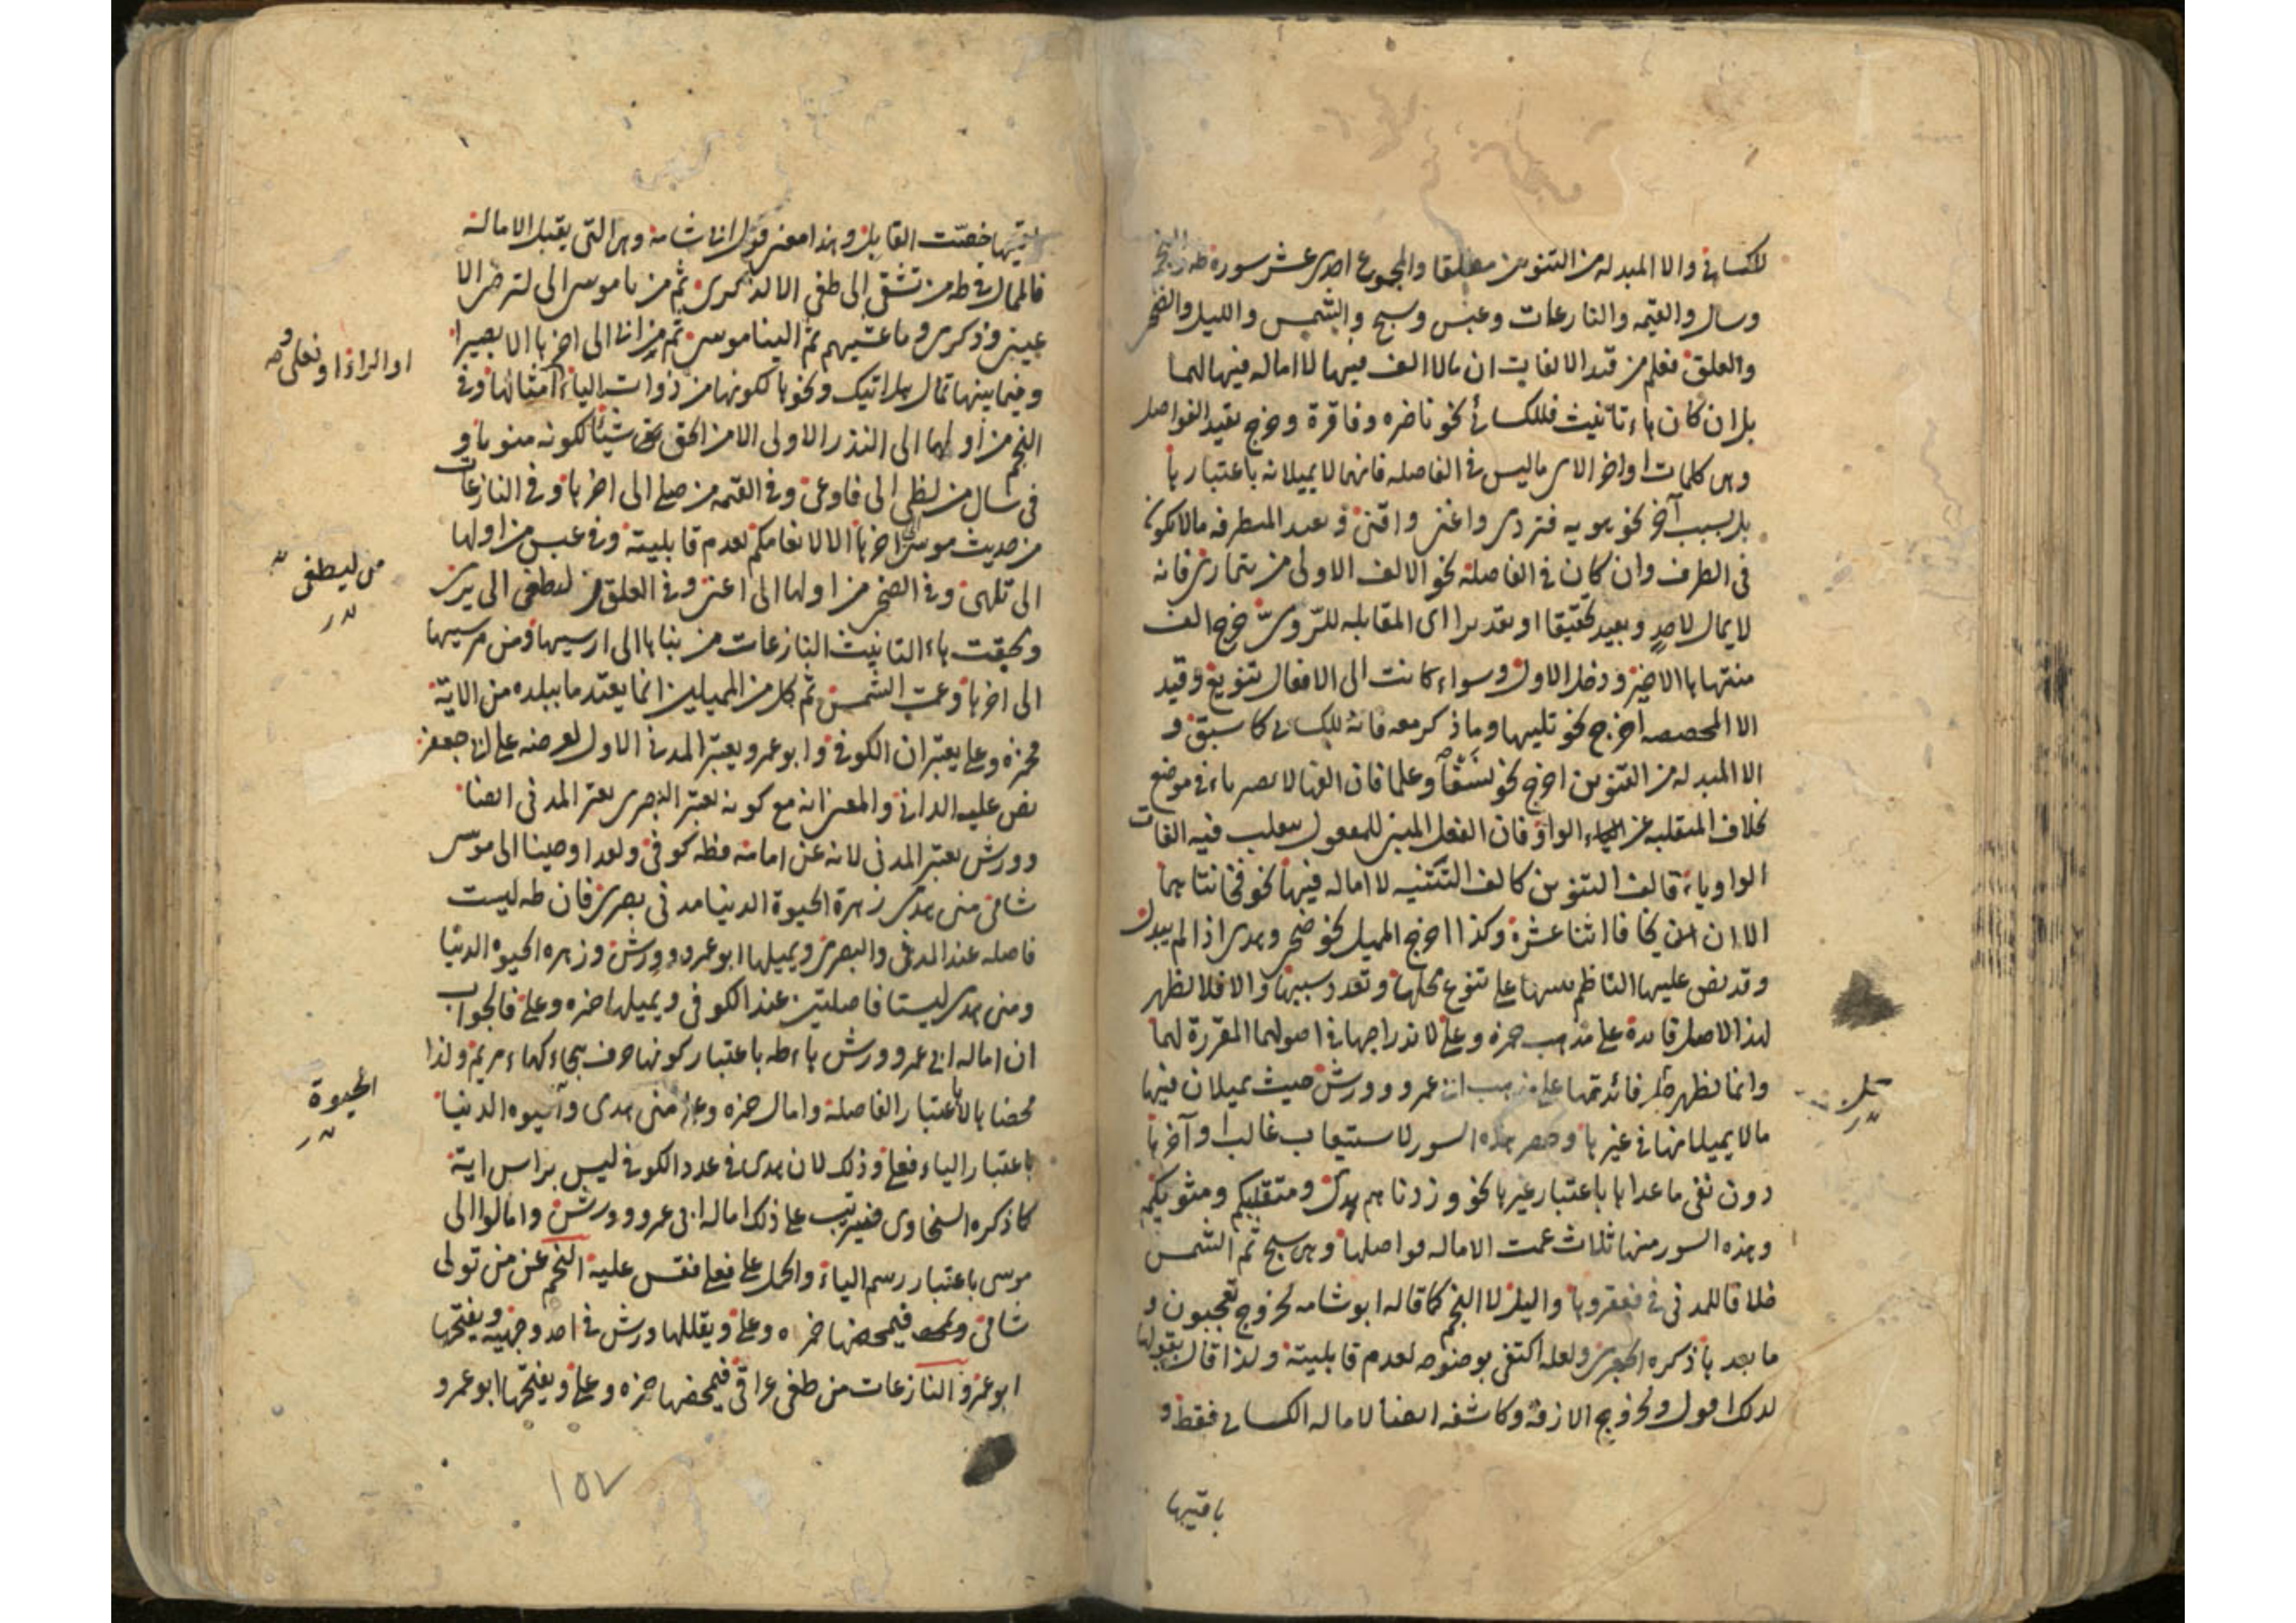 للكسائي والا المبدلة من التنوين مطلقا والمجموع احدى عشر سورة طه والنجم
وسال والقيمه والنازعات وعبس وسبح والشمس والليل والضحى
والعلق فعلم من قيد الالفات ان مالا الف فيها لا اماله فيها لهما
بل ان كان هاء تانيث فللكسائي نحو ناضره وفاقرة وخرج بقيد الفواصل
وهى كلمات اواخر الاى ماليس فى الفاصله فانهما لا يميلانه باعتبارها
بل بسبب آخر نحو هويه فتردى واغنى واقنى وبعيد المتطرفه مالا يكون
فى الطرف وان كان فى الفاصلة نحو الالف الاولى من يتمارى فانه
لا يمال لاحد وبعيد تحقيقا او تقديرا اى المقابله للروى خرج الف
منتهاها الاخير ودخل الاول وسواء كانت الى الافعال تنويع وقيد
الا المخصصه اخرج نحو تليها وما ذكر معه فانه للكسائى كما سبق و
الا المبدله من التنوين اخرج نحو نسفا وعلما فان الفها لا يصير ياء فى موضع
بخلاف المنقلبه عن الواو فان الفعل المبنى للمفعول ينقلب فيه الفات
الواو ياء فالف التنوين كالف التثنيه لا اماله فيها نحو فخانتاهما
الا ان يخافا اثنا عشرة وكذا اخرج الميل نحو ضحى وهدى اذا لم يبدل
وقد نص عليها الناظم على تنوع محلها وتعدد سببها والا فلا يظهر
لهذا الاصل فايدة على مذهب حمزه وعلى لاندراجها فى اصولهما المقررة لهما
وانما يظهر فائدتها على مذهب ابى عمرو وورش حيث يميلان فيها
مالا يميلانها فى غيرها وحصر هذه السور لاستيعاب غالبا وآخرها
دون نفى ما عداها باعتبار غيرها نحو وزدناهم هدى ومتقلبكم ومثويكم
وهذه السور منها ثلاث عمت الاماله فواصلها وهى سبح ثم الشمس
خلافا للمدنى فى فعقروها والليل لا النجم كما قاله ابوشامه لخروج تعجبون و
ما بعدها ذكره الجعبرى ولعله اكتفى بوضوحه لعدم قابليته ولذا قال بقولها
لدلك اقول ولخروج الازفة وكاشفه ايضا لاماله الكسائى فقط و
باقيها
باقيتها خصت القابل وهذا معنى قول ابى شامه وهى التى يقبل الامالة
فالممال فى طه من تشقى الى طغى الا لذكرى ثم من يا موسى الى لترضى الا
عينى وذكرى وما غشيهم ثم الينا موسى ثم من الى اخرها الا بصيرا
وفيما بينها تمال هل اتيك ونحوها لكونها من ذوات الياء او امثالها وفى
النجم من اولها الى النذر الاولى الا من الحق شيئا لكونه منونا و
فى سال من لظى الى فاوعى وفى القيمه من صلى الى اخرها وفى النازعات
من حديث موسى الى اخرها الا لانعامكم لعدم قابليته وفى عبس من اولها
الى تلهى وفى الضحى من اولها الى اغنى وفى العلق من ليطغى الى يرى
ولحقت هاء التانيث النازعات من بناها الى ارسيها ومن مرسيها
الى اخرها وعمت الشمس ثم كل من المميلين انما يعتد ما ببلده من الاية
فحمزه وعلى يعتبران الكوفى وابو عمرو يعتبر المدنى الاول لعرضه على ابى جعفر
نص عليه الدانى والمعنى انه مع كونه يعتبر البصرى يعتبر المدنى ايضا
وورش يعتبر المدنى لانه عن امامه فطه كوفى ولقد اوحينا الى موسى
شامى منى هدى زهرة الحيوة الدنيا مدنى بصرى فان طه ليست
فاصله عند المدنى والبصرى ويميلها ابو عمرو وورش وزهره الحيوه الدنيا
ومنى هدى ليستا فاصلتين عند الكوفى ويميلها حمزه وعلى فالجواب
ان اماله ابى عمرو وورش هاء طه باعتبار كونها حرف هجاء كهاء مريم ولذا
محضا ها لا باعتبار الفاصلة وامال حمزه وعلى منى هدى والحيوه الدنيا
باعتبار الياء فعلى وذلك لان هدى فى عدد الكوفى ليس براس اية
كما ذكره السخاوى فيترتب على ذلك اماله ابى عمرو وورش وامالوا الى
موسى باعتبار رسم الياء والحمل على فعلى فقس عليه النجم عن من تولى
شامى فيمحضها حمزه وعلى ويقللها ورش فى احد وجهيه ويفتحها
ابو عمرو النازعات من طغى عراقى فيمحضها حمزه وعلى ويفتحها ابو عمرو
من ليطغى
الحيوة
١٥٧